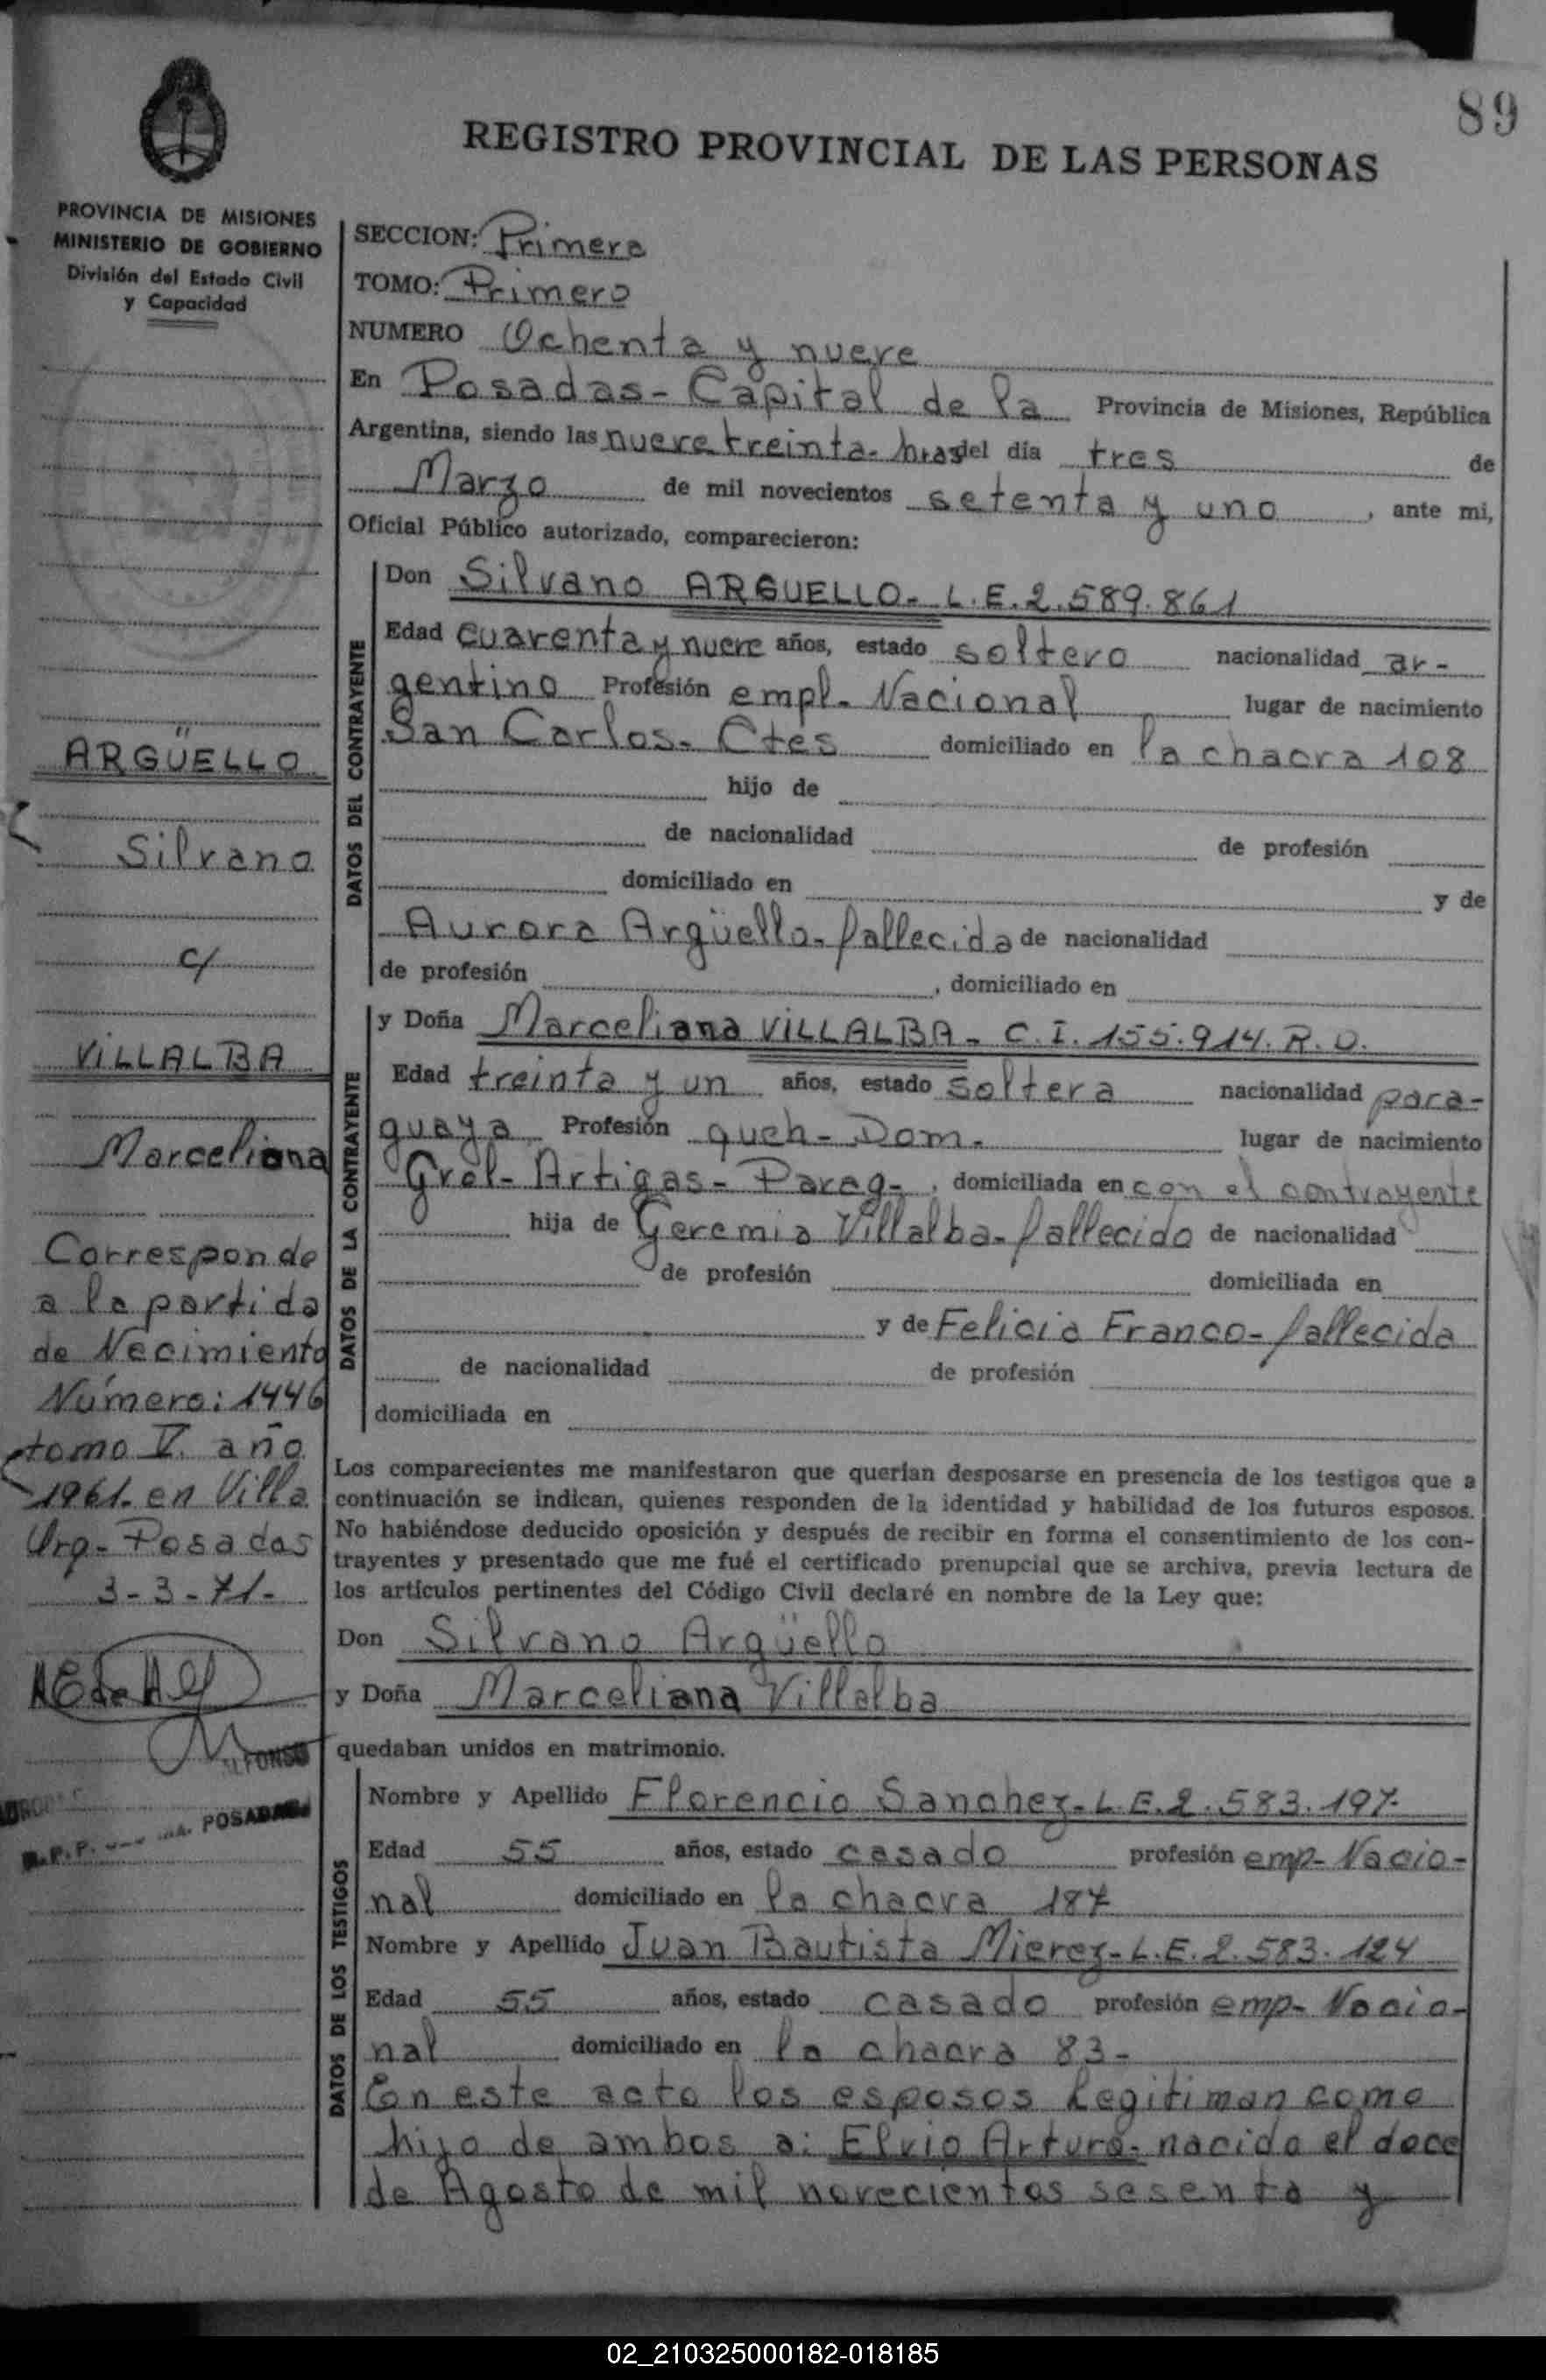 89
REGISTRO PROVINCIAL DE LAS PERSONAS
PROVINCIA DE MISIONES
MINISTERIO DE GOBIERNO
División del Estado Civil
y Capacidad
ARGÜELLO
Silvano
c/
VILLALBA
Marceliana
Corresponde
a la partida
de Nacimiento
Número: 1446
tomo V. año
1961. en Villa
Urq- Posadas
3-3-71-
POSADAS
SECCION: Primera
TOMO: Primero
NUMERO Ochenta y nueve
En Posadas- Capital de la Provincia de Misiones, República
Argentina, siendo las nueve treinta- hras del día tres de
Marzo de mil novecientos setenta y uno, ante mi,
Oficial Público autorizado, comparecieron:
DATOS DEL CONTRAYENTE
Don Silvano ARGUELLO- L.E.2.589.861
Edad cuarenta y nueve años, estado soltero nacionalidad ar-
gentino Profesión empl- Nacional lugar de nacimiento
San Carlos- Ctes domiciliado en la chacra 108
hijo de
de nacionalidad de profesión
domiciliado en y de
Aurora Argüello- fallecida de nacionalidad
de profesión , domiciliado en
DATOS DE LA CONTRAYENTE
y Doña Marceliana VILLALBA- C.I.155.914.R.O.
Edad treinta y un años, estado soltera nacionalidad para-
guaya Profesión queh- Dom- lugar de nacimiento
Gral- Artigas- Parag-, domiciliada en con el contrayente
hija de Geremia Villalba- fallecido de nacionalidad
de profesión domiciliada en
y de Felicia Franco- fallecida
de nacionalidad de profesión
domiciliada en
Los comparecientes me manifestaron que querían desposarse en presencia de los testigos que a
continuación se indican, quienes responden de la identidad y habilidad de los futuros esposos.
No habiéndose deducido oposición y después de recibir en forma el consentimiento de los con-
trayentes y presentado que me fué el certificado prenupcial que se archiva, previa lectura de
los artículos pertinentes del Código Civil declaré en nombre de la Ley que:
Don Silvano Argüello
y Doña Marceliana Villalba
quedaban unidos en matrimonio.
DATOS DE LOS TESTIGOS
Nombre y Apellido Florencio Sanchez- L.E.2.583.197-
Edad 55 años, estado casado profesión emp- Nacio-
nal domiciliado en la chacra 187
Nombre y Apellido Juan Bautista Mierez- L.E.2.583.124
Edad 55 años, estado casado profesión emp- Nacio-
nal domiciliado en la chacra 83-
En este acto los esposos Legitiman como
hijo de ambos a: Elvio Arturo- nacido el doce
de Agosto de mil novecientos sesenta y
02_210325000182-018185